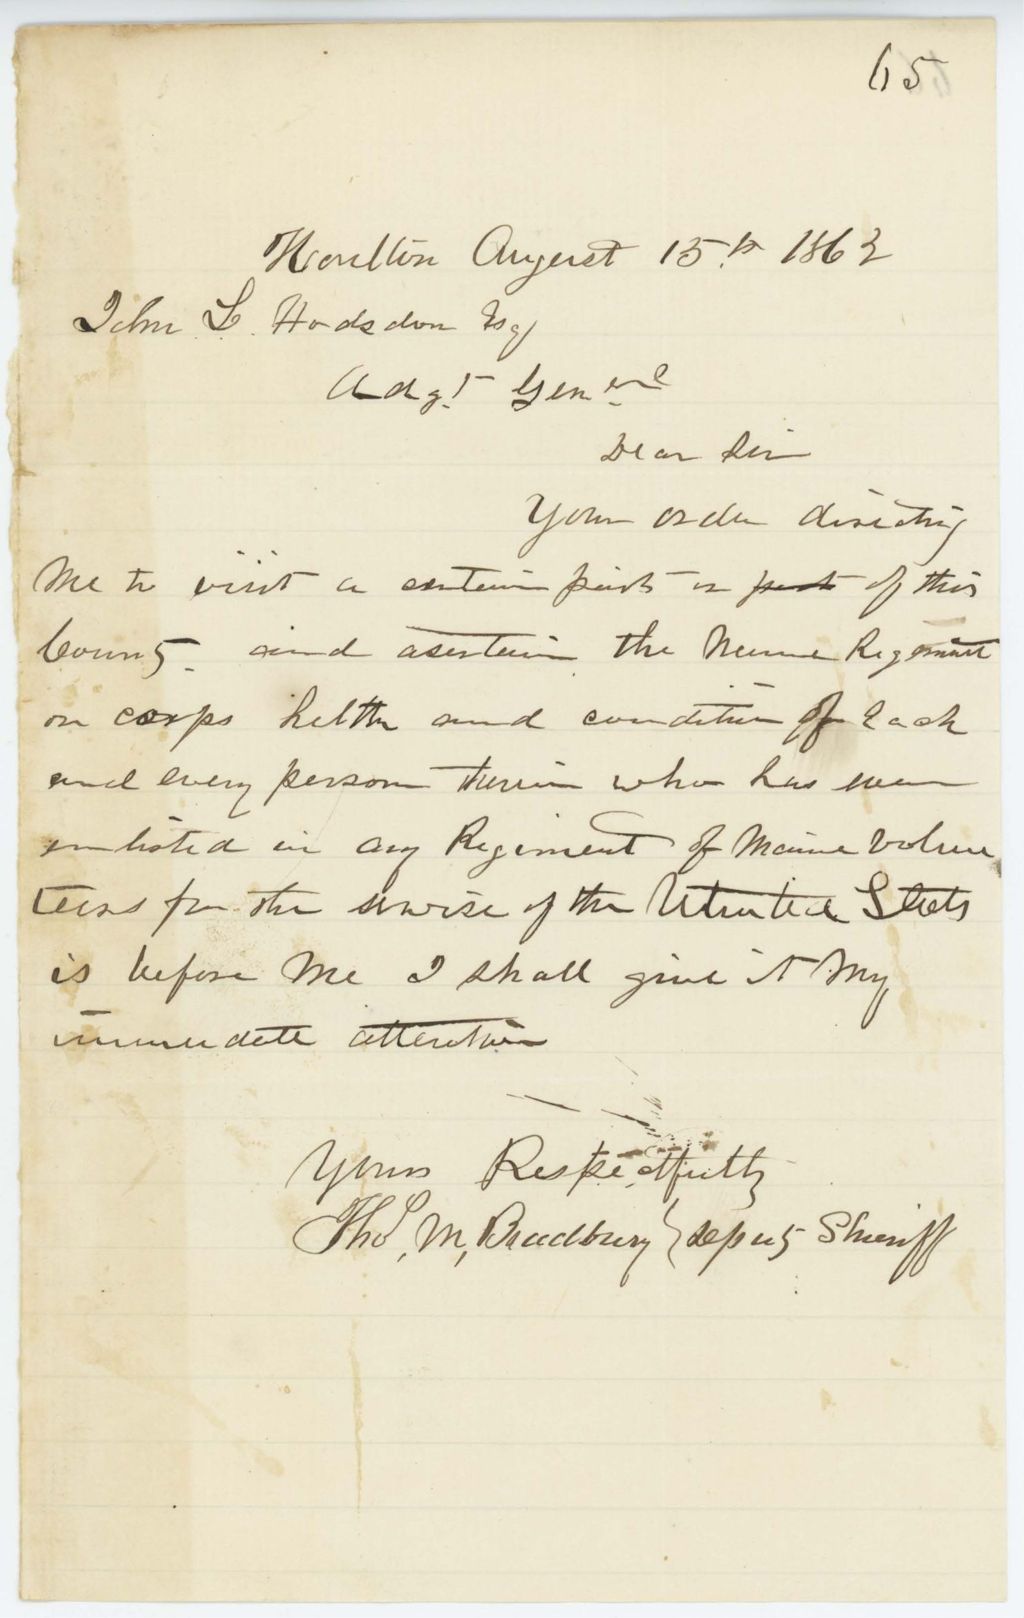 65
Houlton August 15.th 1862
John L. Hodsdon Esq
Adgt. Generel
Dear Sir
Your order directing
Me to visit a certain part or part of this
County and asertain the Name Regiment
or corps helth and condition of Each
and every person therein who has ever
enlisted in any Regiment of Maine Volun
teers for the servise of the United Stats
is before Me I shall give it My
immedate attention
Yours Respectfully
Tho.s M, Bradbury } deputy Sheriff